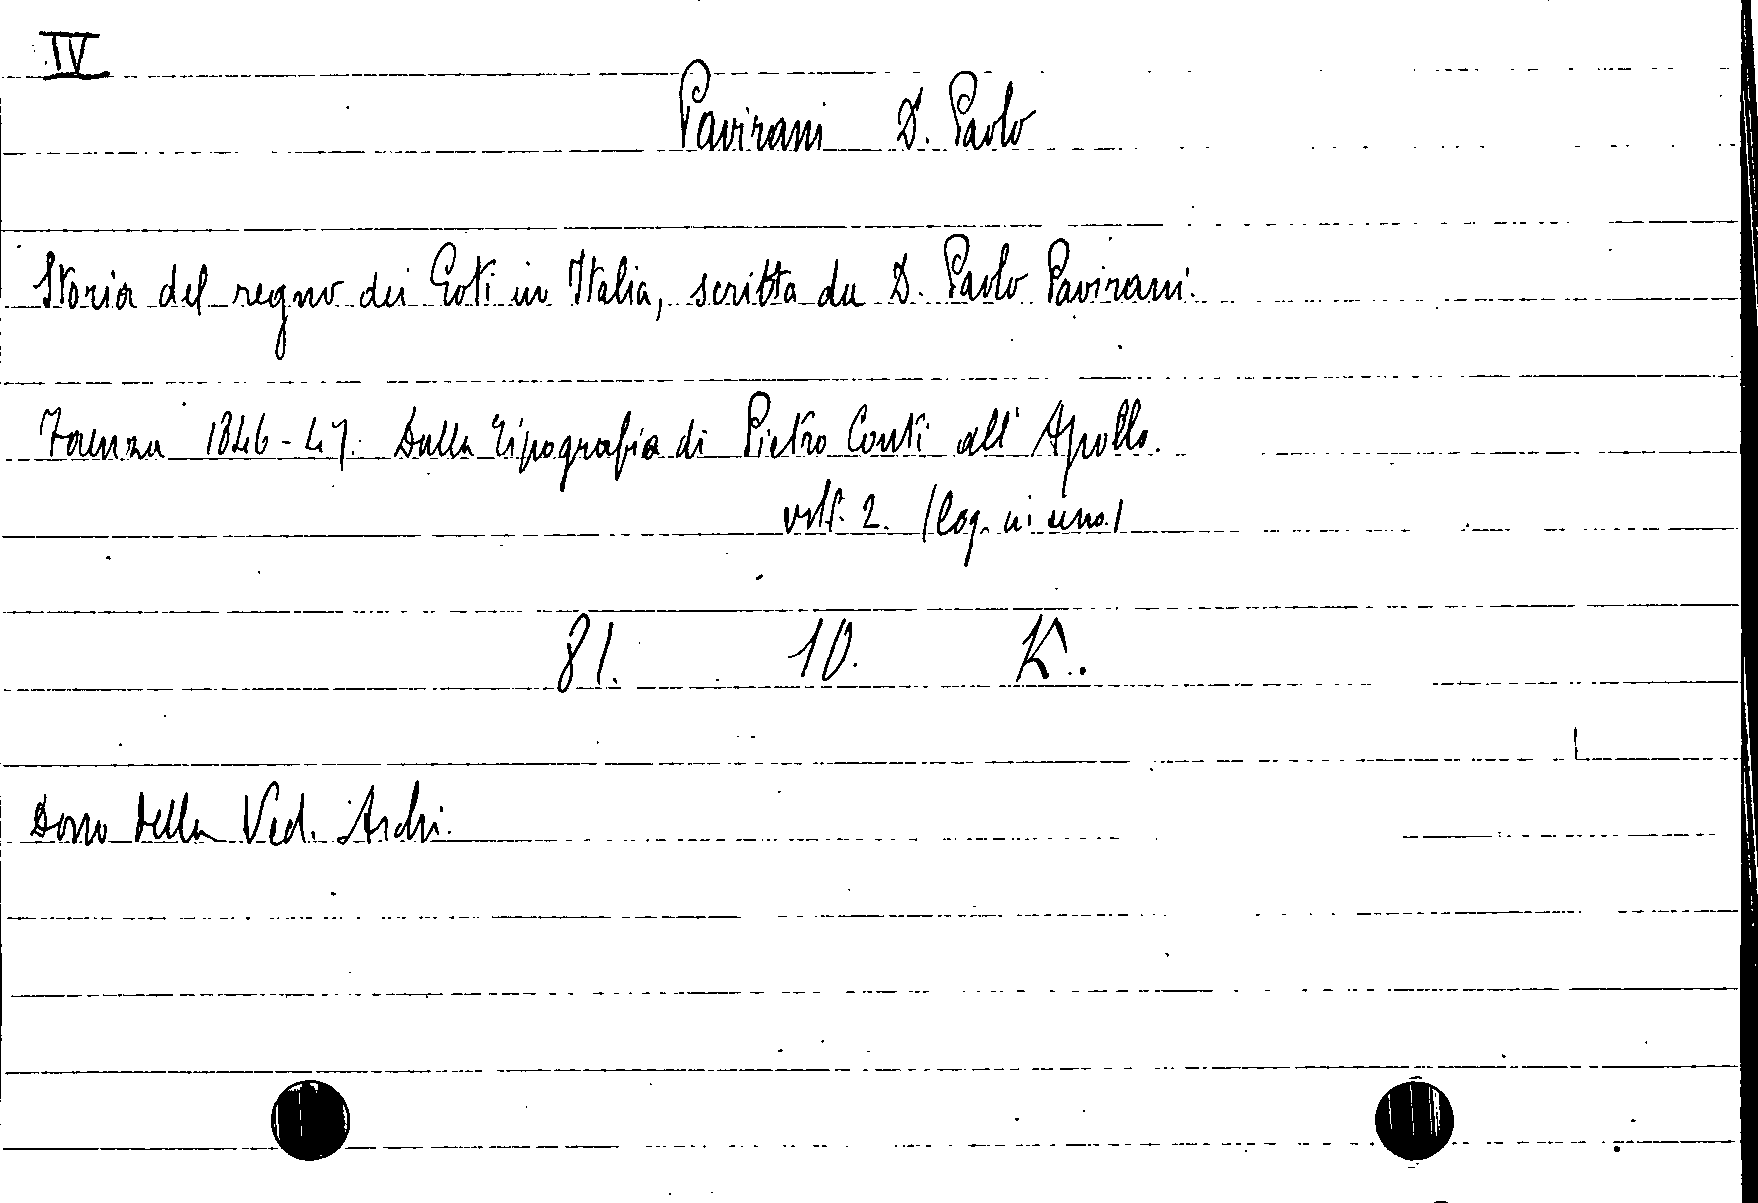 IV
Pavirani D. Paolo
Storia del regno dei Goti in Italia, scritta da D. Paolo Pavirani.
Faenza 1846-47. Dalla Tipografia di Pietro Conti all' Apollo.
voll. 2. (leg. in uno)
81. 10. K.
Dono della Ved. Archi.